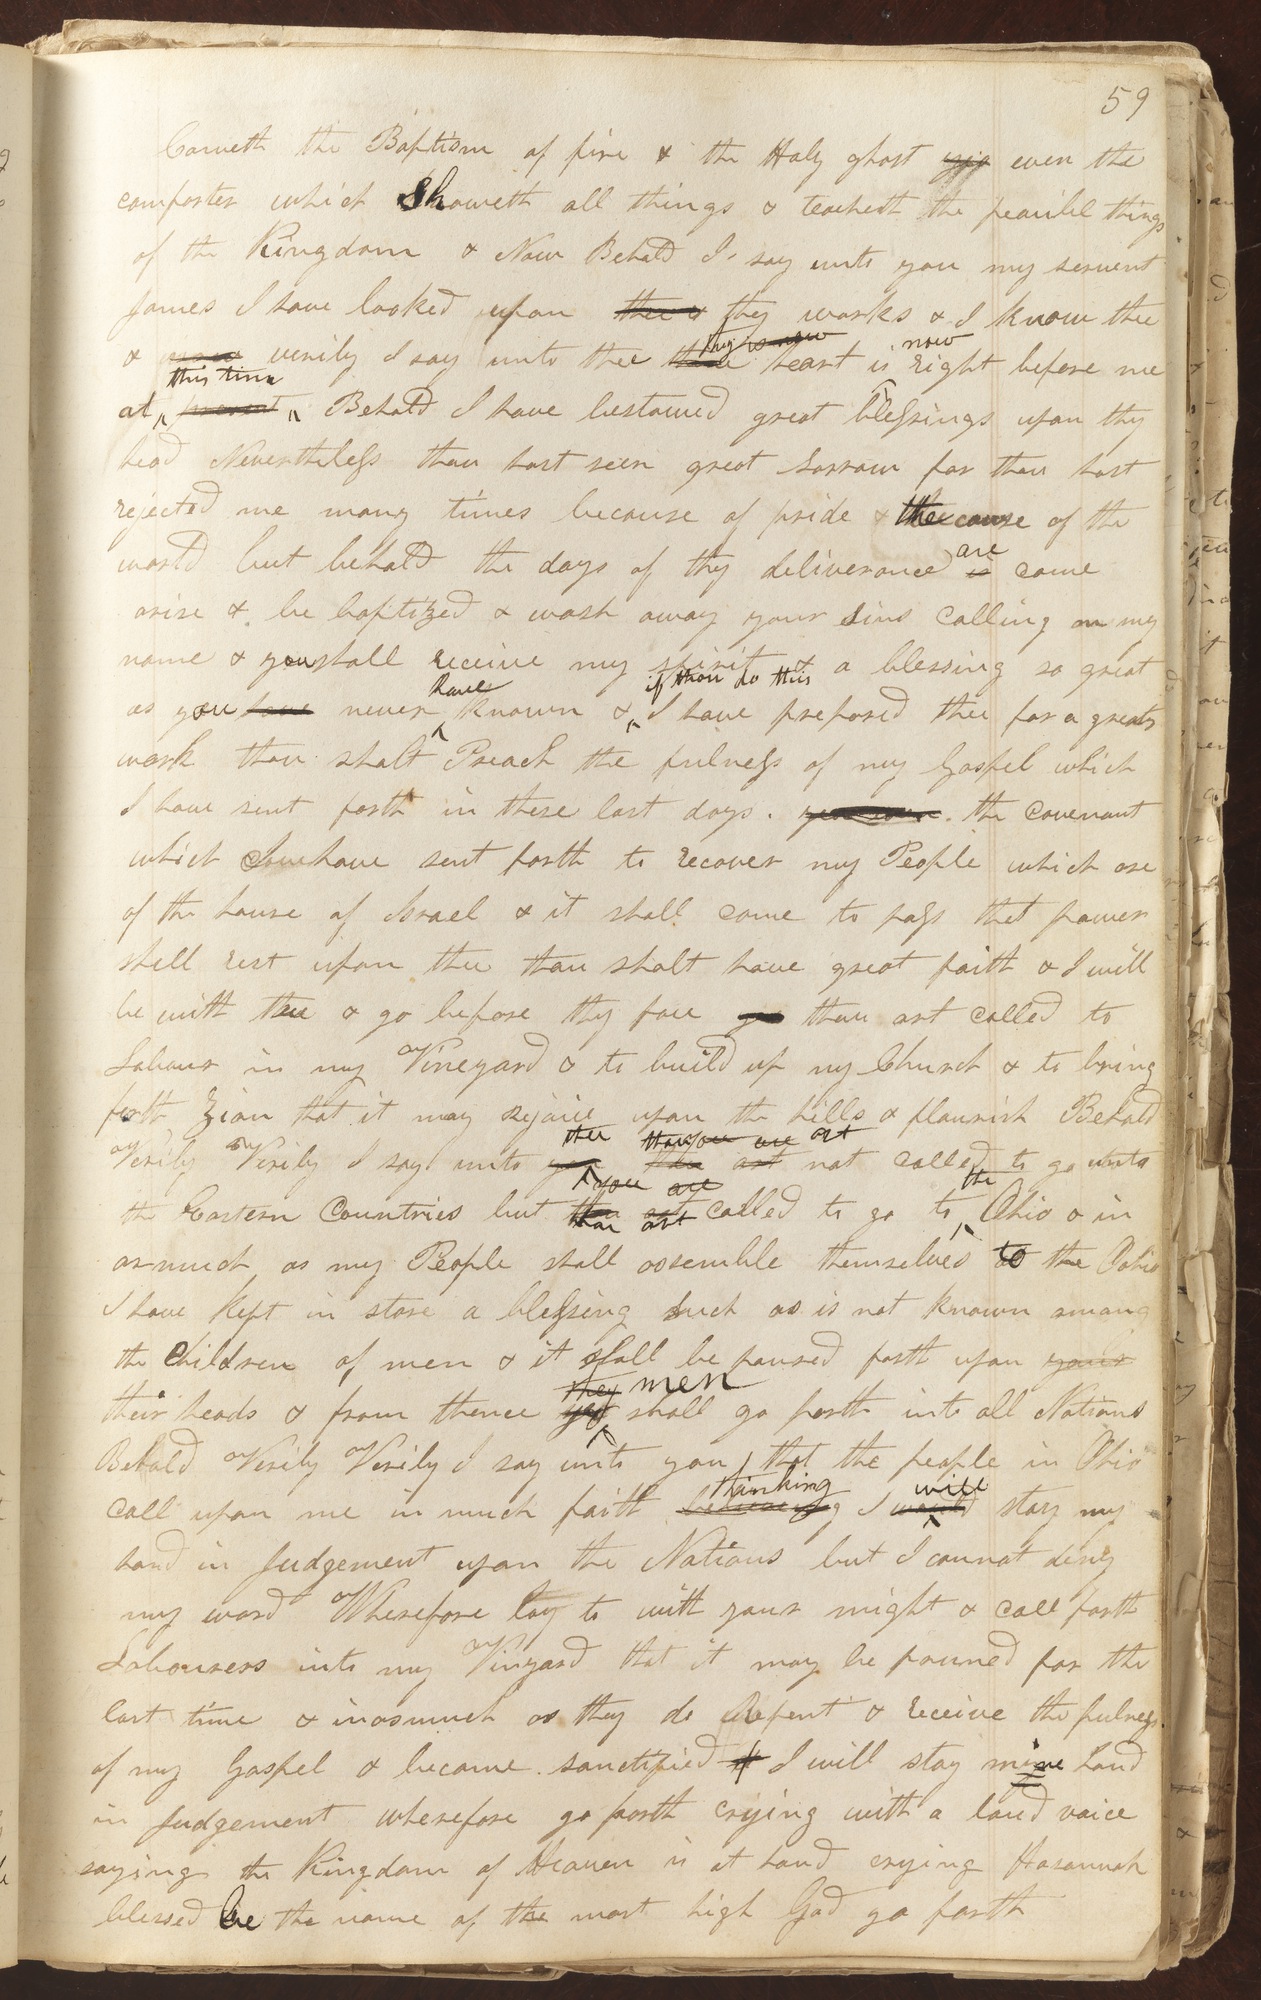 59
Cometh the Baptism of fire & the Holy ghost even the
comforter which Showeth all things & teacheth the peacibl things
of the Kingdom & Now Behold I say unto you my servent
James I have looked upon thy works & I know thee
& verily I say unto thee thy is now heart is now right before me
at this time present Behold I have bestowed great blessings upon thy
head Nevertheless thou hast seen great sorrow for thou hast
rejected me many times because of pride & the cause of the
world but behold the days of thy deliverance is are come
arise & be baptized & wash away your sins calling on my
name & you shall receive my spirit & a blessing so great
as you have never have known & if thou do this I have prepared thee for a greater
work thou shalt Preach the fulness of my Gospel which
I have sent forth in these last days. the covenant
which I have sent forth to recover my People which are
of the house of Israel & it shall come to pass that power
shall rest upon thee thou shalt have great faith & I will
be with thee & go before thy face thou art called to
Labour in my Vineyard & to build up my Church & to bring
forth Zion that it may rejoice upon the hills & flourish Behold
Verily Verily I say unto you thee thou you are art not called to go unto
the Eastern Countries but you are thou art called to go to the Ohio & in
asmuch as my People shall assemble themselves to the Oohio
I have kept in store a blessing such as is not known among
the children of men & it shall be poured forth upon your
their heads & from thence they men shall go forth into all Nations
Behold Verily Verily I say unto you that the people in Ohio
call upon me in much faith believing thinking I would will stay my
hand in Judgement upon the Nations but I cannot deny
my word Wherefore lay to with your might & call forth
Labourers into my Vinyard that it may be pruned for the
last time & inasmuch as they do Repent & receive the fulness
of my Gospel & become sanctified I will stay mine hand
in Judgement wherefore go forth crying with a loud voice
saying the Kingdom of Heaven is at hand crying Hosannah
blessed be the name of the most high God go forth